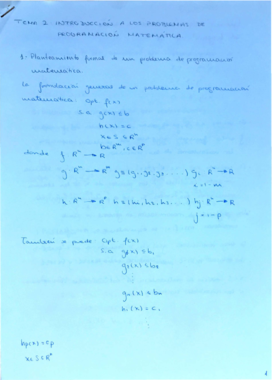 TEMA 2: INTRODUCCIÓN A LOS PROBLEMAS DE
PROGRAMACIÓN MATEMÁTICA
1- Planteamiento formal de un problema de programación
matemática
La formulación general de un problema de programación
matemática: Opt f(x)
s.a g(x) ≤ b
h(x) = c
x ∈ S ⊆ Rⁿ
donde f Rⁿ → R
g Rⁿ → Rᵐ g ≡ (g₁, g₂, g₃ ... ) gᵢ Rⁿ → R
i = 1 ... m
h Rⁿ → Rᵖ h ≡ (h₁, h₂, h₃ ... ) hⱼ Rⁿ → R
j = 1 ... p
También se puede Opt f(x)
s.a g₁(x) ≤ b₁
g₂(x) ≤ b₂
gₘ(x) ≤ bₘ
h₁(x) = c₁
hp(x) = cp
x ∈ S ⊆ Rⁿ